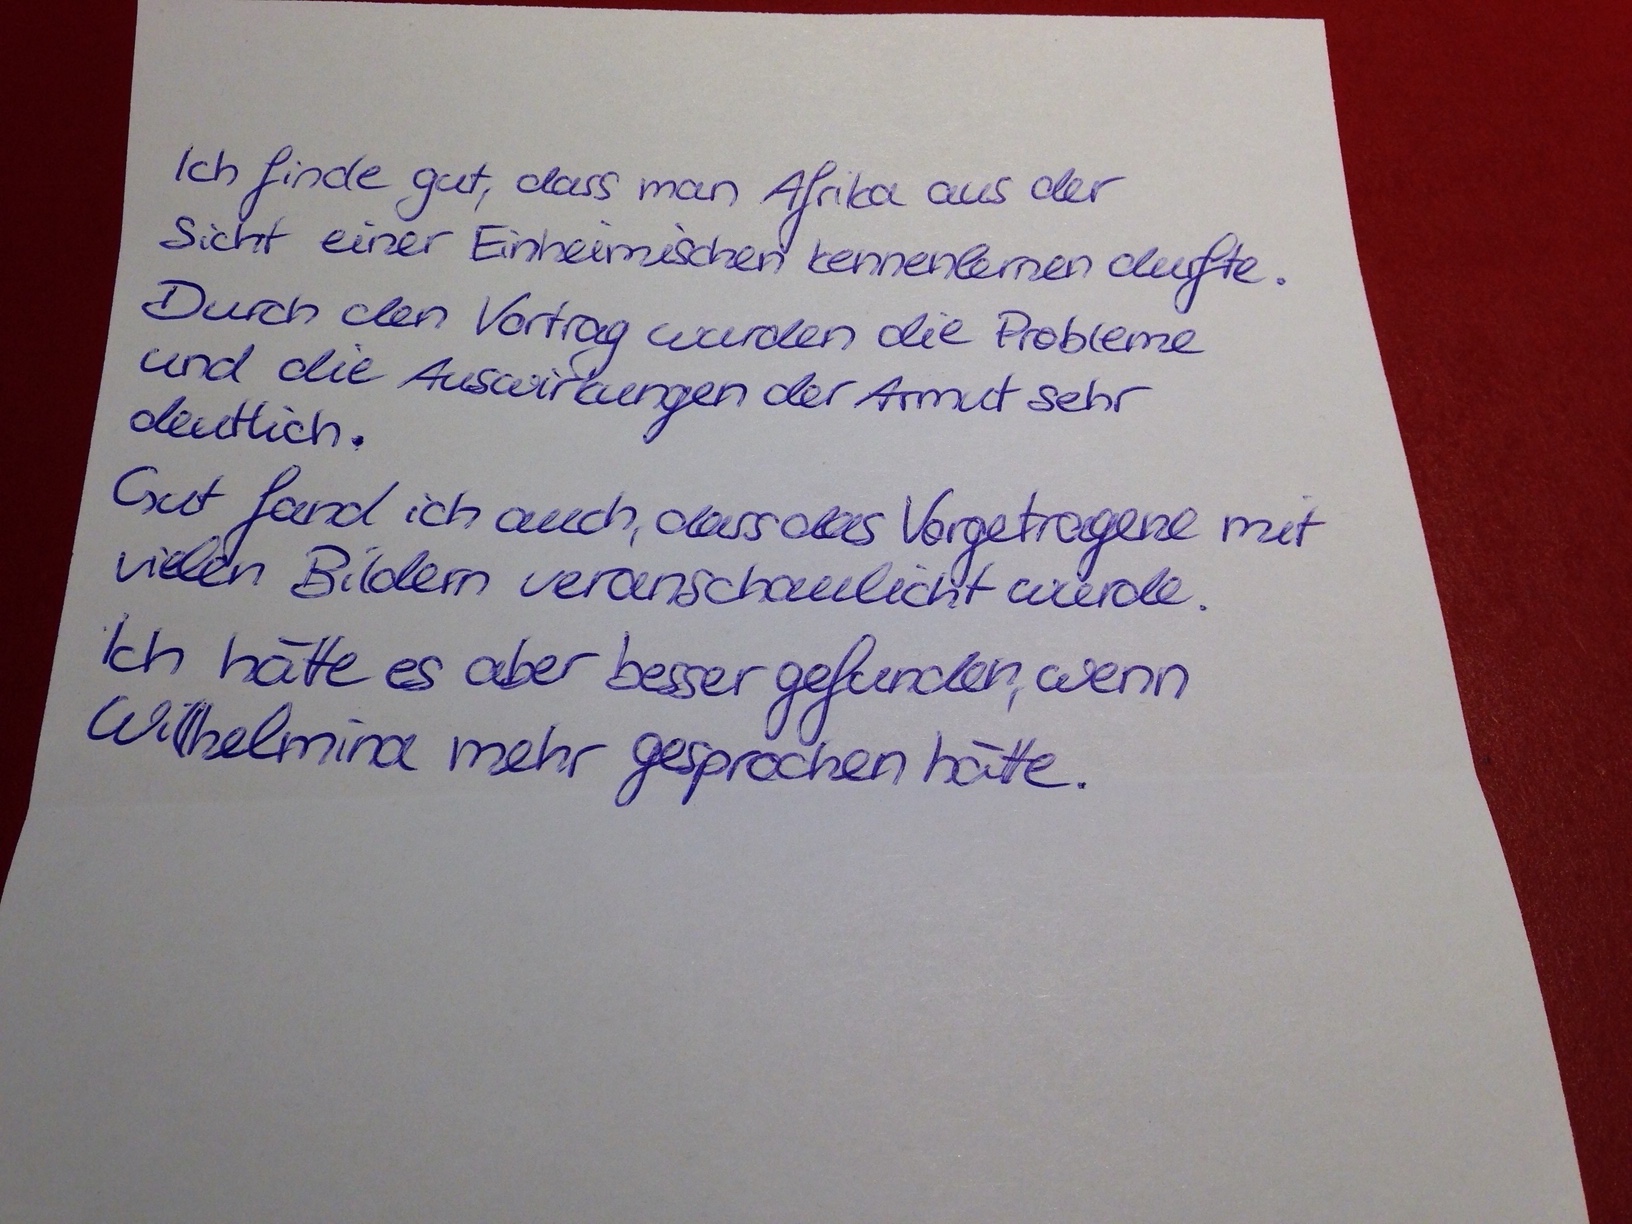 Ich finde gut, dass man Afrika aus der
Sicht einer Einheimischen kennenlernen durfte.
Durch den Vortrag wurden die Probleme
und die Auswirkungen der Armut sehr
deutlich.
Gut fand ich auch, dass das Vorgetragene mit
vielen Bildern veranschaulicht wurde.
Ich hätte es aber besser gefunden, wenn
Wilhelmina mehr gesprochen hätte.